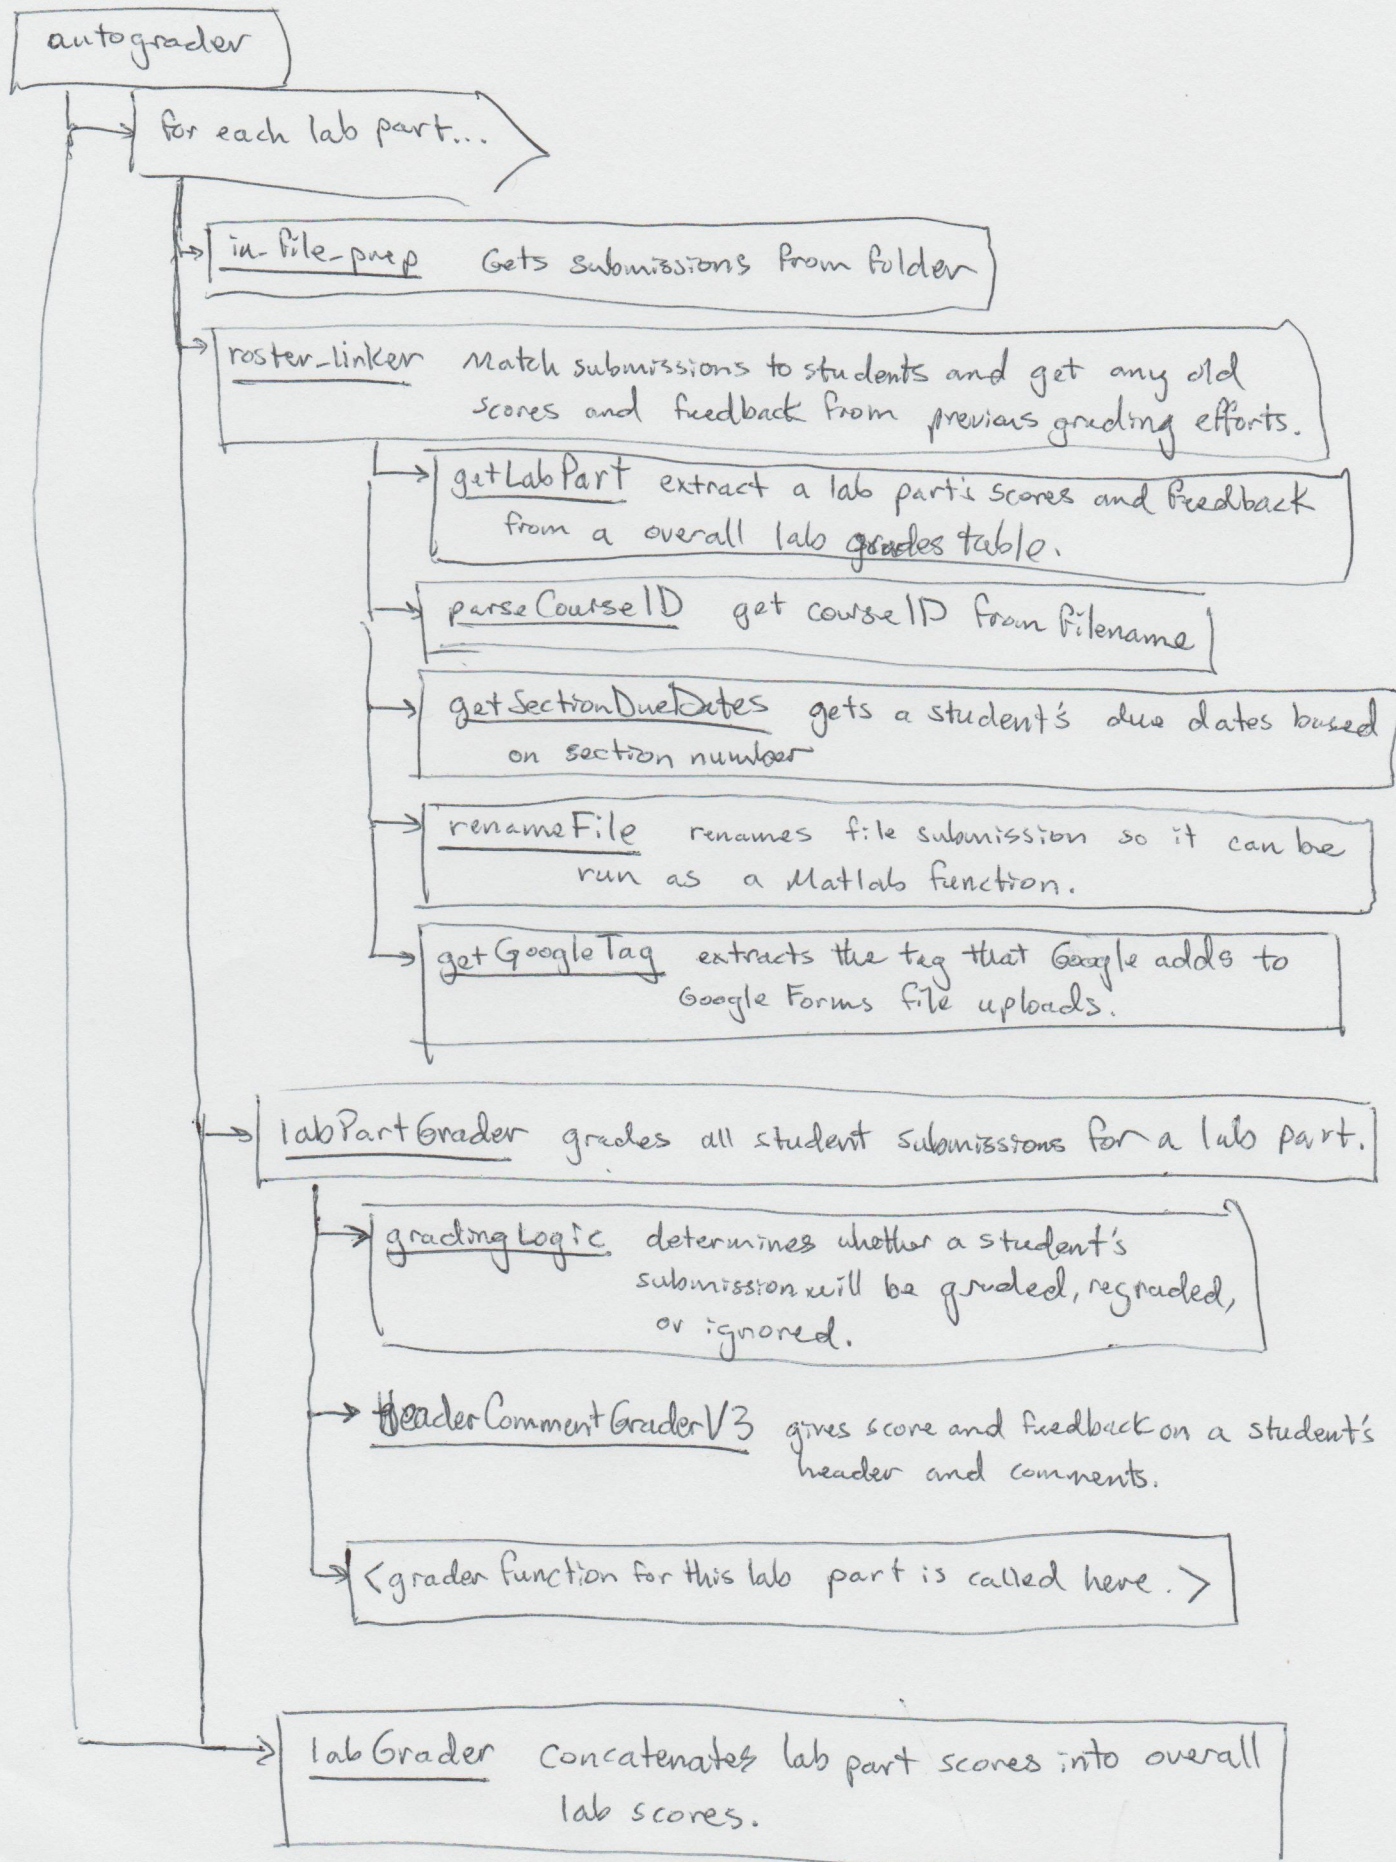 autograder
for each lab part...
in_file_prep Gets submissions from folder
roster_linker Match submissions to students and get any old
scores and feedback from previous grading efforts.
getLabPart extract a lab part's scores and feedback
from a overall lab grades table.
parseCourseID get courseID from filename
getSectionDueDates gets a student's due dates based
on section number
renameFile renames file submission so it can be
run as a Matlab function.
getGoogleTag extracts the tag that Google adds to
Google Forms file uploads.
labPartGrader grades all student submissions for a lab part.
gradingLogic determines whether a student's
submission will be graded, regraded,
or ignored.
HeaderCommentGraderV3 gives score and feedback on a student's
header and comments.
<grader function for this lab part is called here.>
labGrader concatenates lab part scores into overall
lab scores.